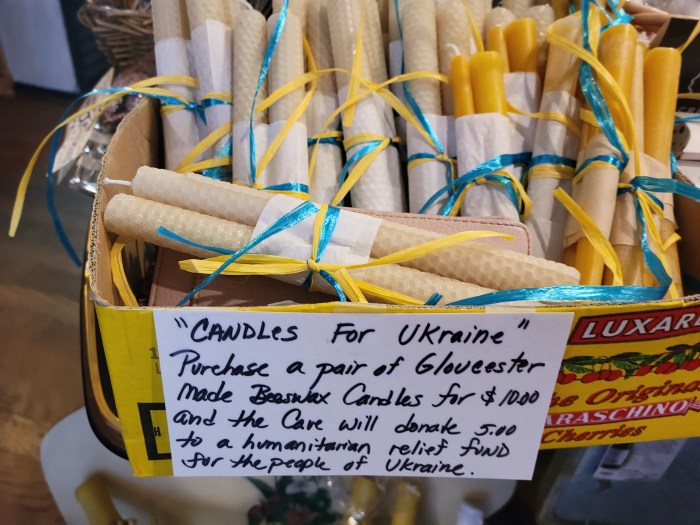 "CANDLES For UKraine"
Purchase a pair of Gloucester
made Beeswax Candles for $10.00
and the Cave will donate 5.00
to a humanitarian relief fund
for the people of Ukraine.
LUXAR
he Origina
ARASCHINO
Cherries